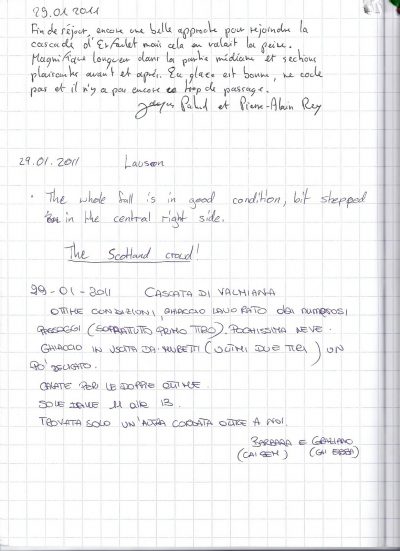 29.01.2011
Fin de séjour, encore une belle approche pour rejoindre la
cascade d'Enfaulet mais cela en valait la peine.
Magnifique longueur dans la partie médiane et sections
plaisantes avant et après. La glace est bonne, ne coule
pas et il n'y a pas encore trop de passage.
Jacques et Pierre-Alain Rey
29.01.2011 Lauson
• The whole fall is in good condition, bit stepped
in the central right side.
The Scotland crowd!
29-01-2011 CASCATA DI VALMIANA
OTTIME CONDIZIONI, GHIACCIO LAVORATO DAI NUMEROSI
PASSAGGI (SOPRATUTTO PRIMO TIRO). POCHISSIMA NEVE.
GHIACCIO IN USCITA DAI MURETTI (ULTIMI DUE TIRI) UN
PO' DELICATO.
CALATE PER LE DOPPIE OTTIME.
SOLE DALLE 11 alle 13.
TROVATA SOLO UN'ALTRA CORDATA OLTRE A NOI.
BARBARA E GRAZIANO
(CAI BEM) (CAI ERBA)